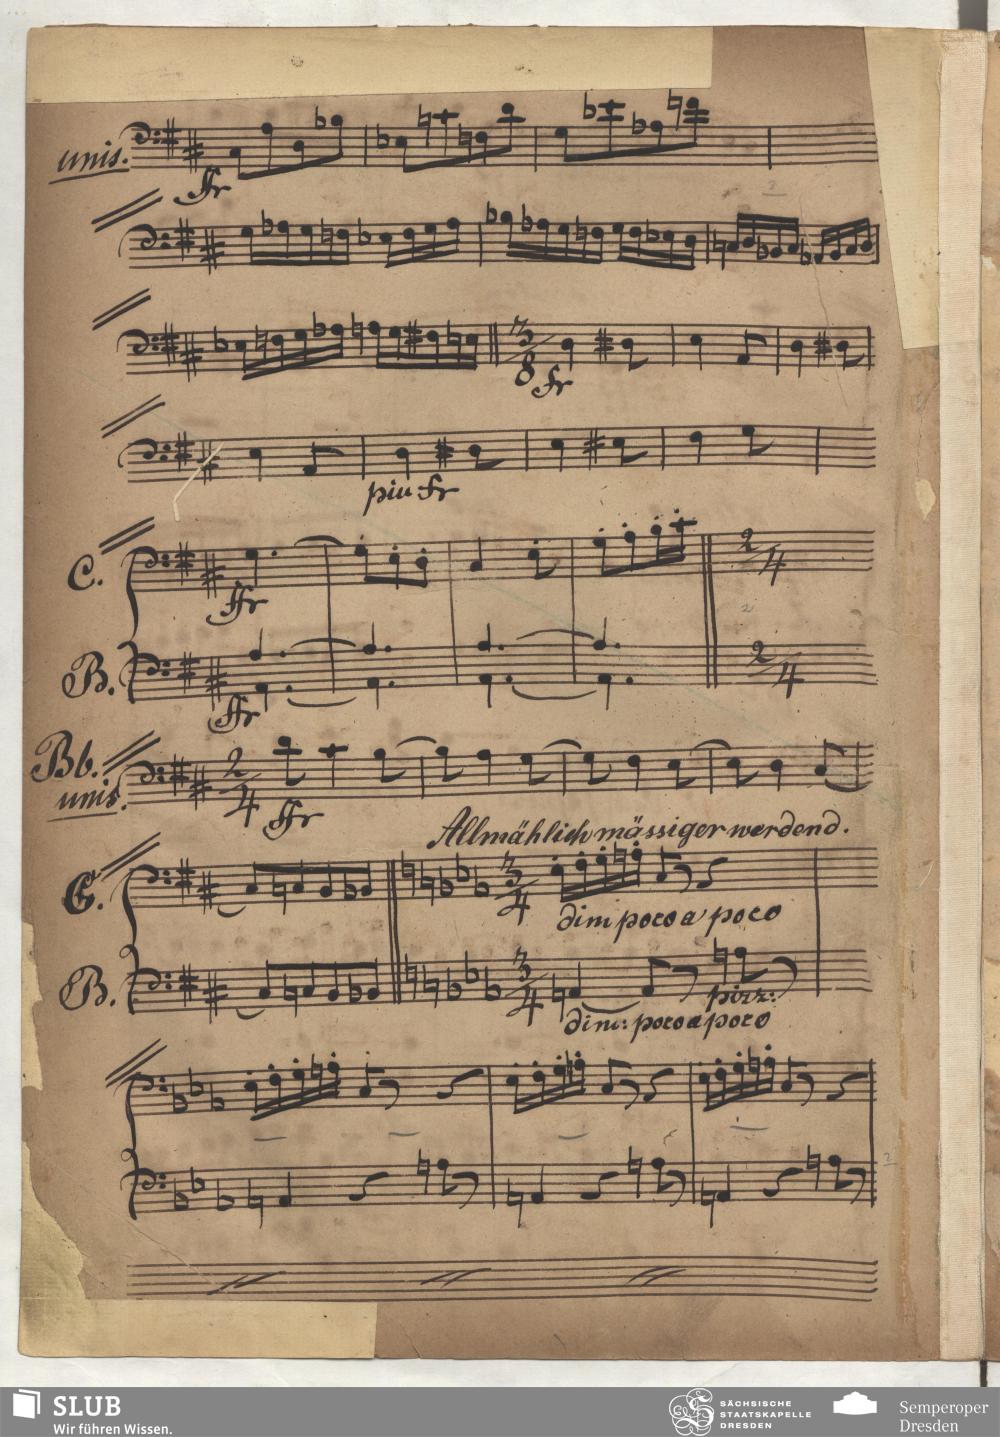 unis.
fr
3/8 fr
piu fr
C.
ffr
2/4
B.
ffr
2/4
Bb.
unis.
2/4
ffr
Allmählich mässiger werdend.
C.
3/4
dim poco a poco
B.
3/4
pizz:
dim: poco a poco
SLUB
Wir führen Wissen.
SÄCHSISCHE
STAATSKAPELLE
DRESDEN
Semperoper
Dresden